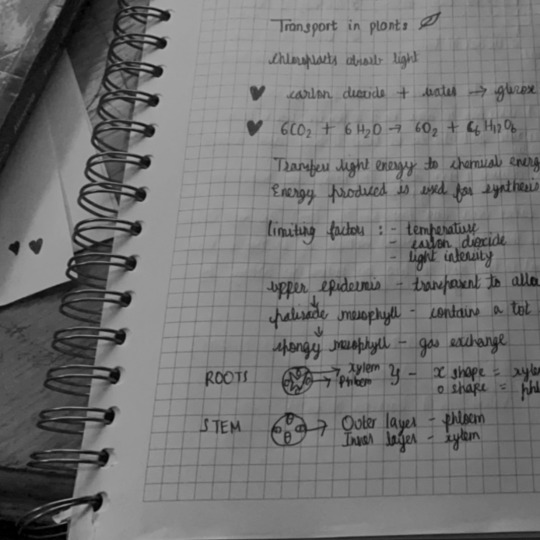 Transport in plants
Chloroplasts absorb light
carbon dioxide + water → glucose
6CO₂ + 6H₂O → 6O₂ + C₆H₁₂O₆
Transfers light energy to chemical energ
Energy produced is used for synthesis
limiting factors : - temperature
- carbon dioxide
- light intensity
upper epidermis - transparent to allo
palisade mesophyll - contains a lot
spongy mesophyll - gas exchange
ROOTS → xylem → Phloem } - x shape = xyle
o shape = phl
STEM → Outer layer - phloem
Inner layer - xylem